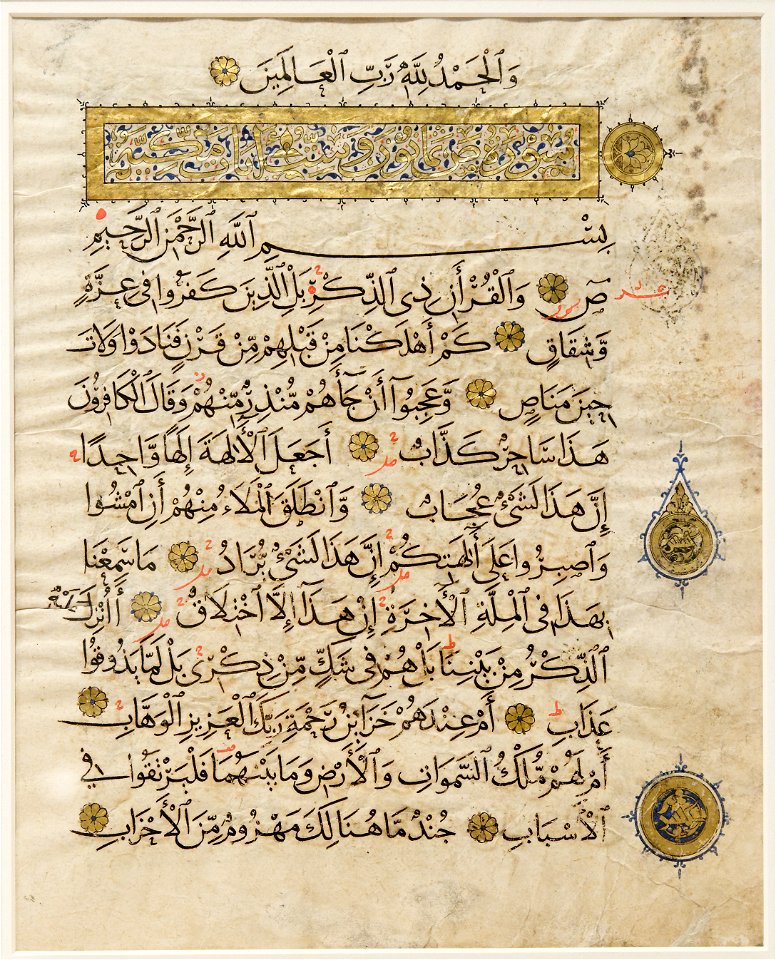 وَٱلْحَمْدُ لِلَّهِ رَبِّ ٱلْعَالَمِينَ
سورة ص ثمانون وست ايات مكية
بِسْمِ ٱللَّهِ ٱلرَّحْمَٰنِ ٱلرَّحِيمِ
صٓ وَٱلْقُرْأٰنِ ذِى ٱلذِّكْرِ بَلِ ٱلَّذِينَ كَفَرُوا فِى عِزَّةٍ
وَّشِقَاقٍ كَمْ أَهْلَكْنَا مِن قَبْلِهِمْ مِّنْ قَرْنٍ فَنَادَوْا وَلَاتَ
حِينَ مَنَاصٍ وَعَجِبُوٓا أَنْ جَآءَهُمْ مُّنْذِرٌ مِّنْهُمْ وَقَالَ ٱلْكَافِرُونَ
هَذَا سَاحِرٌ كَذَّابٌ أَجَعَلَ ٱلْأَلِهَةَ إِلَهًا وَّاحِدًا
إِنَّ هَذَا لَشَىْءٌ عُجَابٌ وَٱنْطَلَقَ ٱلْمَلَأُ مِنْهُمْ أَنِ ٱمْشُوا
وَٱصْبِرُوا عَلَىٓ أٰلِهَتِكُمْ إِنَّ هَذَا لَشَىْءٌ يُّرَادُ مَا سَمِعْنَا
بِهَذَا فِى ٱلْمِلَّةِ ٱلْأٰخِرَةِ إِنْ هَذَآ إِلَّا ٱخْتِلَاقٌ أَأُنْزِلَ عَلَيْهِ
ٱلذِّكْرُ مِنْ بَيْنِنَا بَلْ هُمْ فِى شَكٍّ مِّنْ ذِكْرِى بَلْ لَمَّا يَذُوقُوا
عَذَابِ أَمْ عِنْدَهُمْ خَزَآئِنُ رَحْمَةِ رَبِّكَ ٱلْعَزِيزِ ٱلْوَهَّابِ
أَمْ لَهُمْ مُّلْكُ ٱلسَّمَوَاتِ وَٱلْأَرْضِ وَمَا بَيْنَهُمَا فَلْيَرْتَقُوا فِى
ٱلْأَسْبَابِ جُنْدٌ مَّا هُنَالِكَ مَهْزُومٌ مِّنَ ٱلْأَحْزَابِ